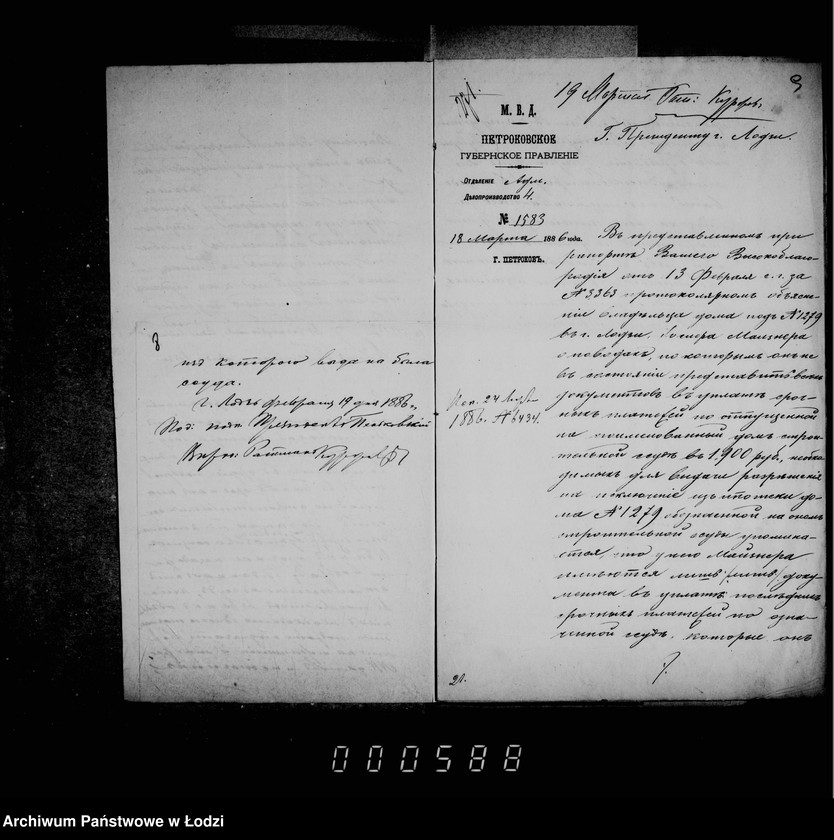 8
изъ котораго выдана была
ссуда.
г. Лодзь февраля 19 дня 1886 г.
9
19 Марта
Г. Президенту г. Лодзи.
М. В. Д.
ПЕТРОКОВСКОЕ
ГУБЕРНСКОЕ ПРАВЛЕНІЕ
Отдѣленіе Адм.
Дѣлопроизводство 4.
№ 1583
18 Марта 1886 года.
Г. ПЕТРОКОВЪ.
1886. № 6434.
Въ представленномъ при
рапортѣ Вашего Высокоблаго-
родія отъ 13 Февраля с. г. за
№ 3363 протоколярномъ объясне-
ніи владѣльца дома подъ № 1279
въ г. Лодзи, Майзнера
о поводахъ, по которымъ онъ не
въ состояніи представить
документовъ въ уплатѣ сроч-
ныхъ платежей по отпущенной
на поименованный домъ строи-
тельной ссудѣ въ 1.900 руб., необхо-
димыхъ для выдачи разрѣшенія
на исключеніе изъ ипотеки до-
ма № 1279 обезпеченной на ономъ
строительной ссуды упомина-
ется, что у него Майзнера
имѣются лишь доку-
мента въ уплатѣ послѣднихъ
срочныхъ платежей по озна-
ченной ссудѣ, которые онъ
21.
000588
Archiwum Państwowe w Łodzi